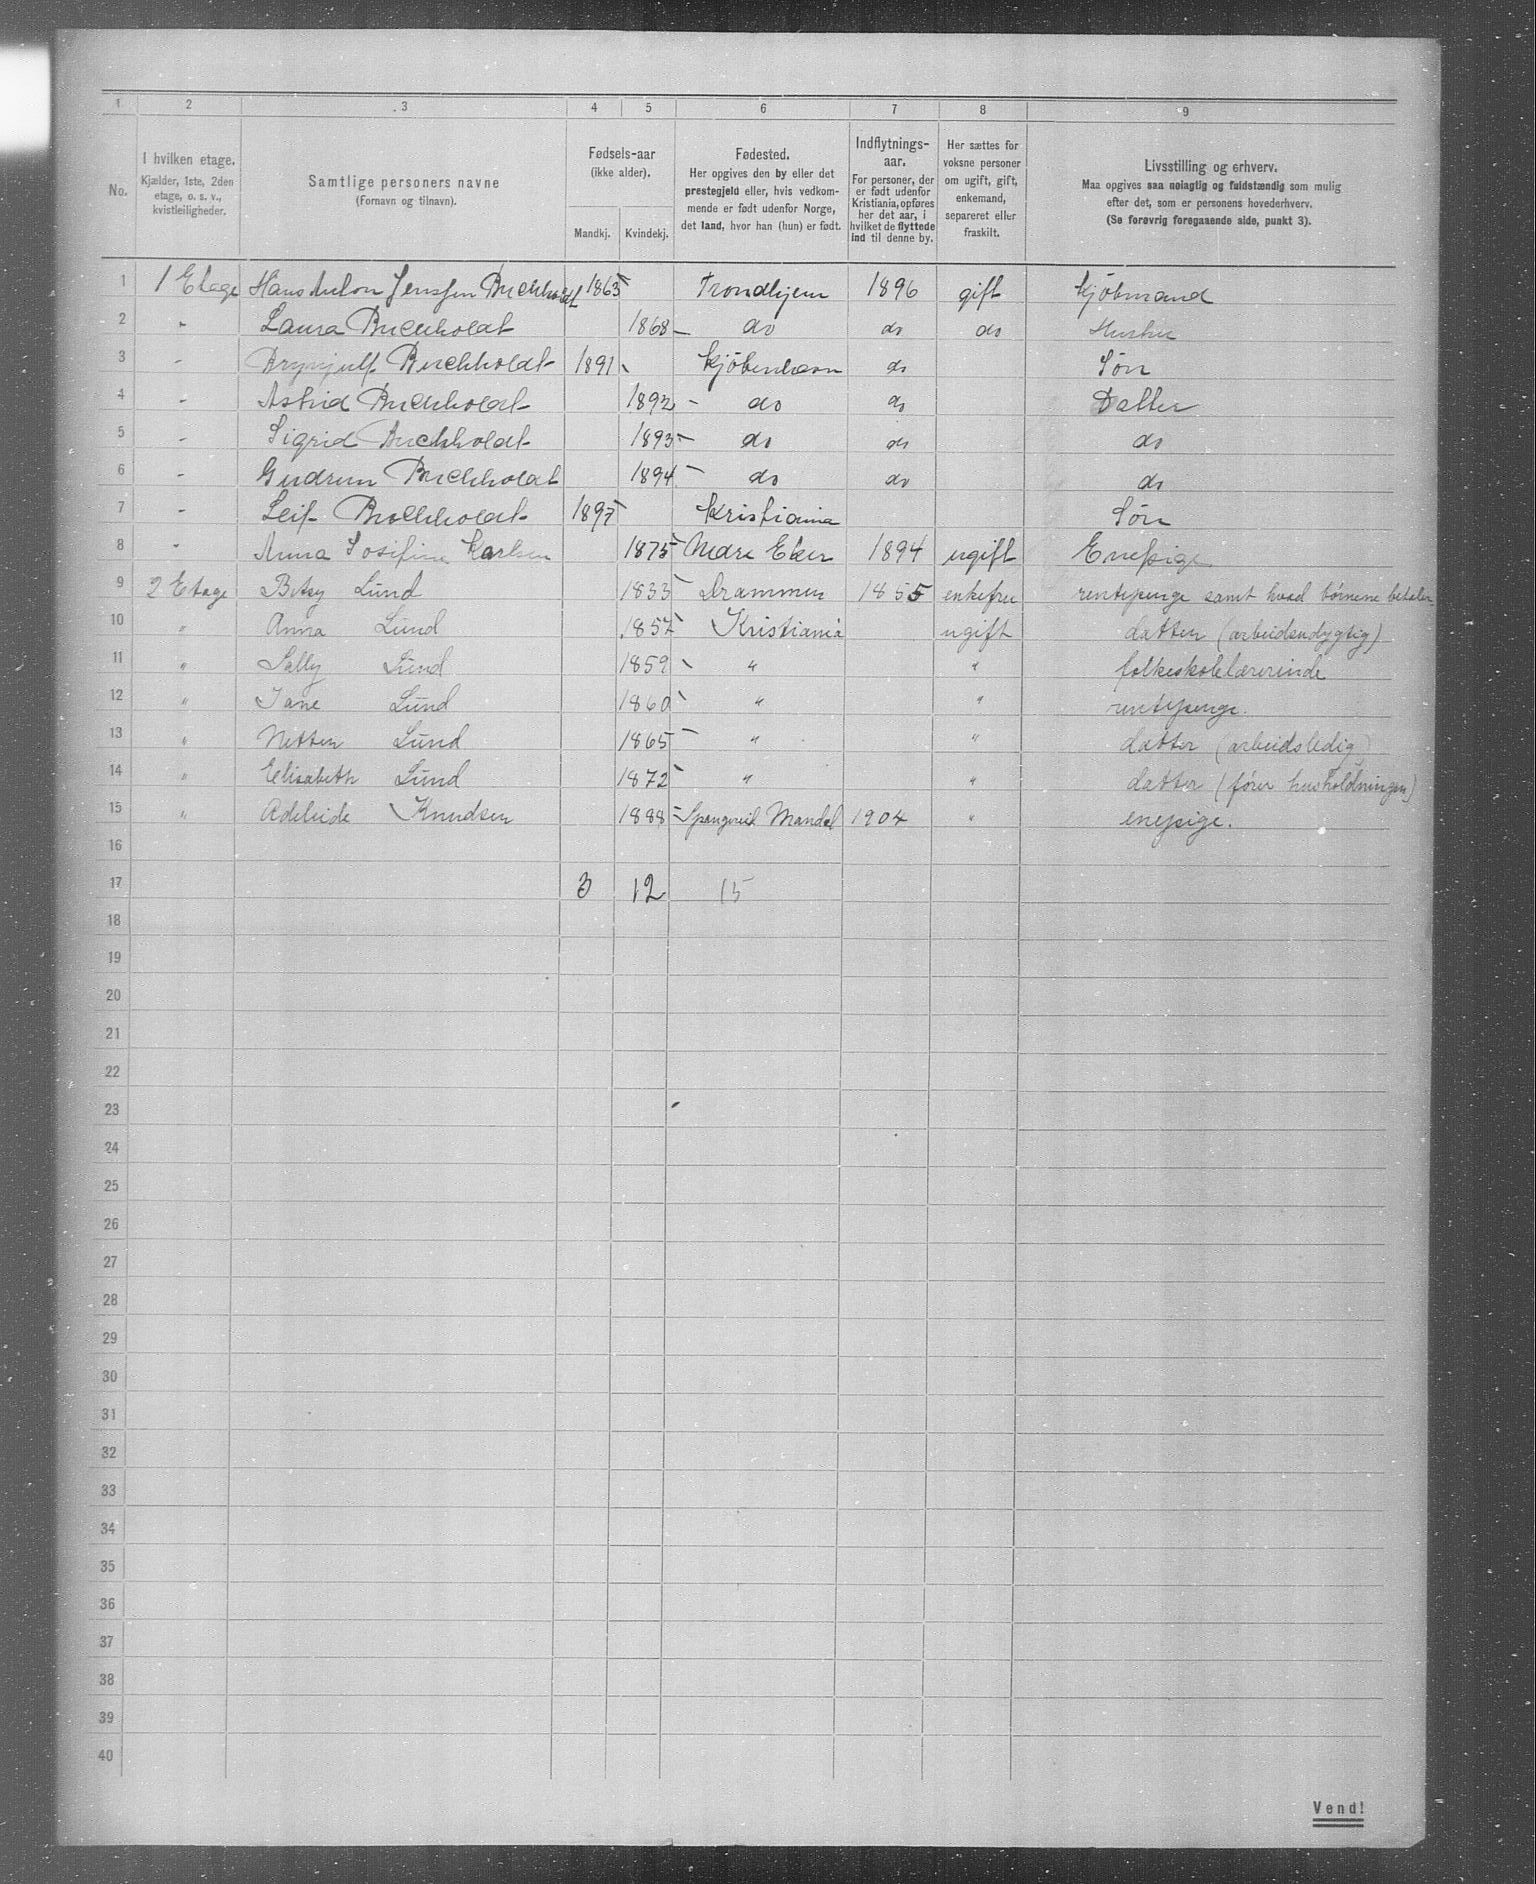 1 2 3 4 5 6 7 8 9
No.
I hvilken etage.
Kjælder, 1ste, 2den
etage, o. s. v.,
kvistleiligheder.
Samtlige personers navne
(Fornavn og tilnavn).
Fødsels-aar
(ikke alder).
Mandkj. Kvindekj.
Fødested.
Her opgives den by eller det
prestegjeld eller, hvis vedkom-
mende er født udenfor Norge,
det land, hvor han (hun) er født.
Indflytnings-
aar.
For personer, der
er født udenfor
Kristiania, opføres
her det aar, i
hvilket de flyttede
ind til denne by.
Her sættes for
voksne personer
om ugift, gift,
enkemand,
separeret eller
fraskilt.
Livsstilling og erhverv.
Maa opgives saa nøiagtig og fuldstændig som mulig
efter det, som er personens hovederhverv.
(Se forøvrig foregaaende side, punkt 3).
1 1 Etage Hans Anton Jenssen Buchholdt 1863 Trondhjem 1896 gift Kjøbmand
2 - Laura Buchholdt 1868 - do do do Hustru
3 - Brynjulf Buchholdt 1891 Kjøbenhavn do Søn
4 - Astrid Buchholdt 1892 - do do Datter
5 - Sigrid Buchholdt 1893 - do do do
6 - Gudrun Buchholdt 1894 - do do do
7 - Leif Buchholdt 1897 Kristiania Søn
8 - Anna Josifine Karlsen 1875 Nedre Eker 1894 ugift Enepige
9 2 Etage Betsy Lund 1833 Drammen 1855 enkefru rentepenge samt hvad børnene betaler
10 " Anna Lund 1857 Kristiania ugift datter (arbeidsudygtig)
11 " Sally Lund 1859 " " folkeskolelærerinde
12 " Jane Lund 1860 " " rentepenge.
13 " Netten Lund 1865 " " datter (arbeidsledig)
14 " Elisabeth Lund 1872 " " datter (fører husholdningen)
15 " Adeleide Knudsen 1888 Spangereid Mandal 1904 " enepige.
16
17 3 12 15
18
19
20
21
22
23
24
25
26
27
28
29
30
31
32
33
34
35
36
37
38
39
40
Vend!